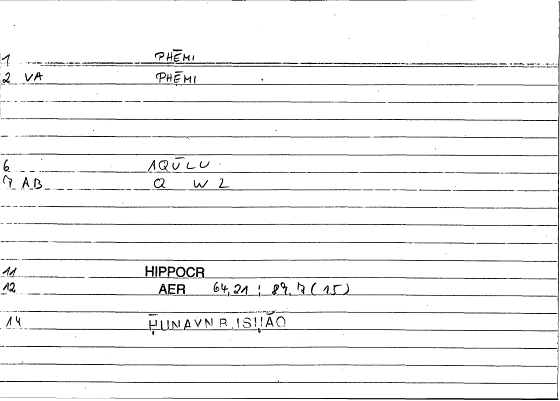 1 PHĒMI
2 VA PHĒMI
6 AQŪLU
7 AB Q W 2
11 HIPPOCR
12 AER 64,21 ; 89,7 (15)
14